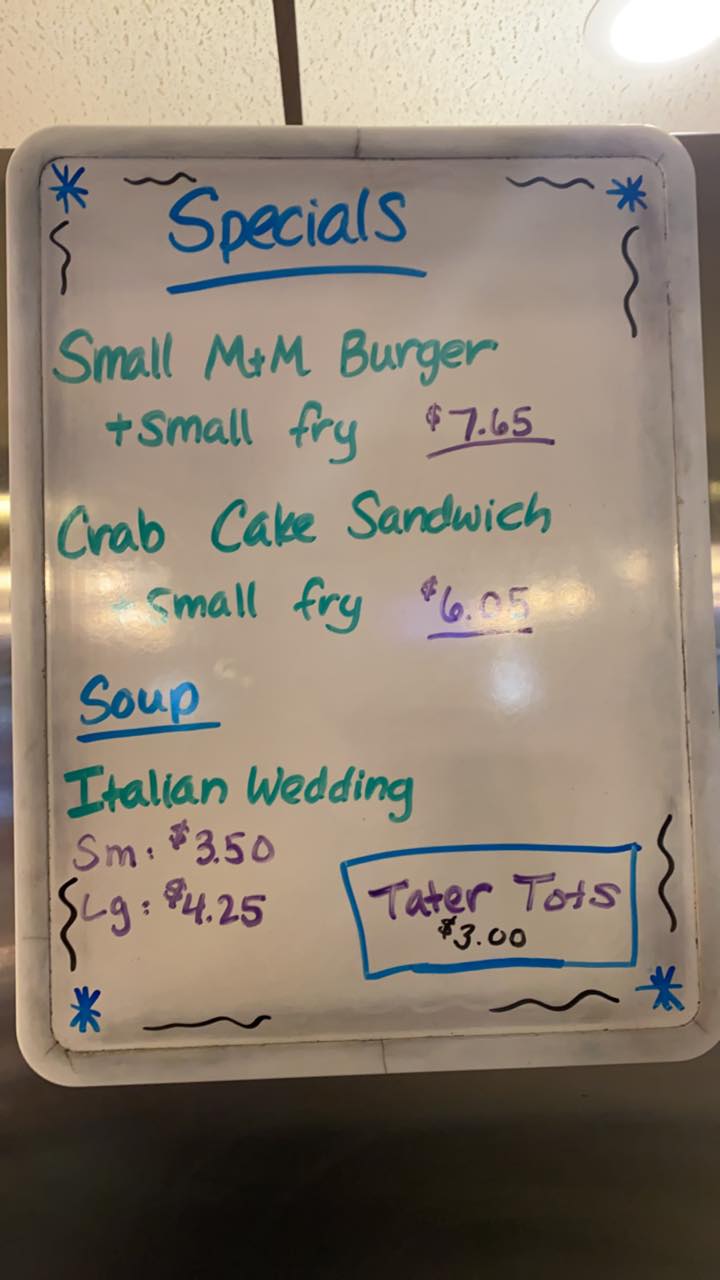 Specials
Small M+M Burger
+small fry $7.65
Crab Cake Sandwich
+small fry $6.05
Soup
Italian Wedding
Sm: $3.50
Lg: $4.25
Tater Tots
$3.00